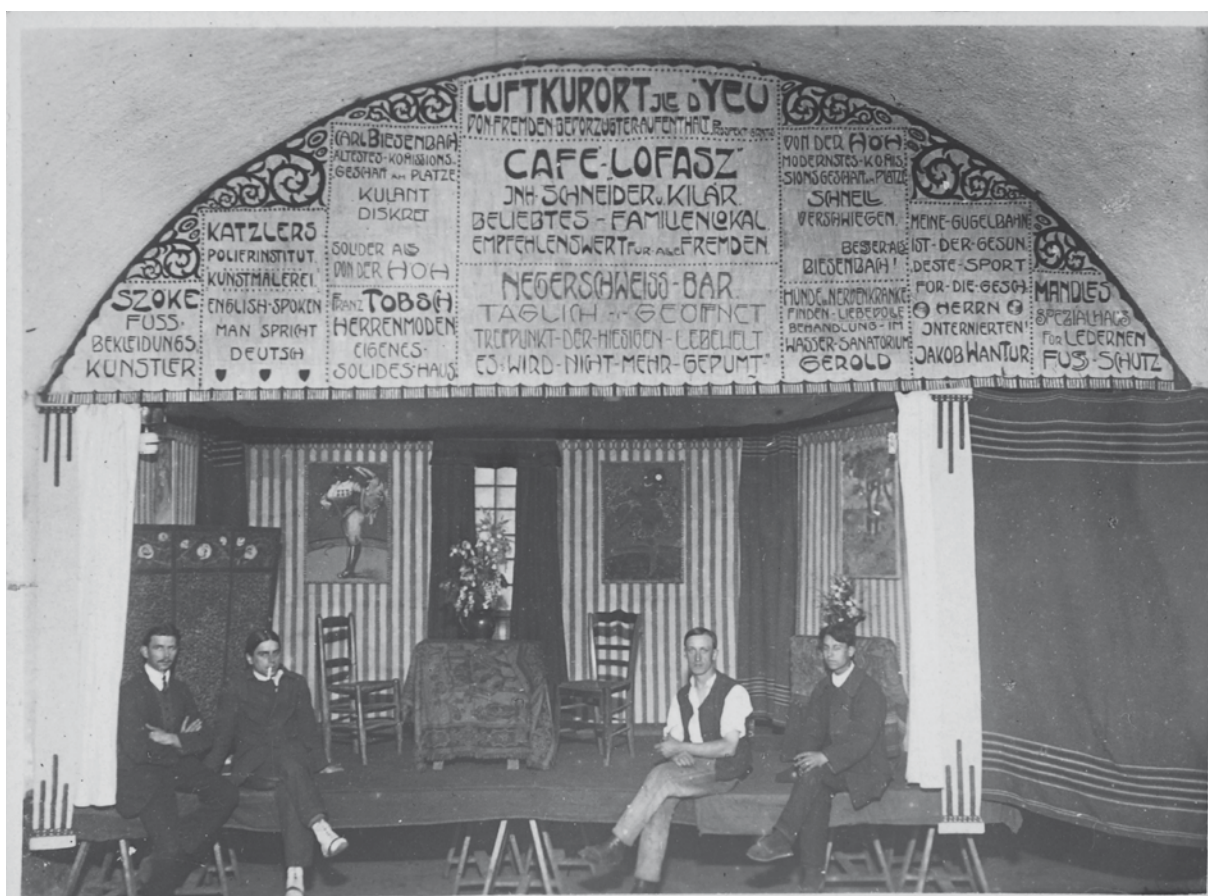 SZÖKE
FUSS-
BEKLEIDUNGS
KÜNSTLER
KATZLERS
POLIERINSTITUT.
KUNSTMALEREI.
ENGLISH-SPOKEN
MAN SPRICHT
DEUTSCH
CARL BIESENBACH
ÄLTESTES-KOMISSIONS-
GESCHÄFT AM PLATZE
KULANT
DISKRET
SOLIDER ALS
VON DER HÖH
FRANZ TOBSCH
HERRENMODEN
EIGENES-
SOLIDES-HAUS
LUFTKURORT JLE D'YEU
VON-FREMDEN-BEVORZUGTER-AUFENTHALT.
CAFÉ-"LOFASZ"
JNH-SCHNEIDER U. KILÁR.
BELIEBTES-FAMILIENLOKAL.
EMPFEHLENSWERT FÜR ALLE FREMDEN.
NEGERSCHWEISS-BAR.
TÄGLICH-GEÖFFNET
TREFFPUNKT-DER-HIESIGEN-LEBEWELT
ES-WIRD-NICHT-MEHR-GEPUMT"
VON DER HÖH
MODERNSTES-KOMIS
SIONSGESCHÄFT AM PLATZE
SCHNELL
VERSCHWIEGEN.
BESSER ALS
BIESENBACH!
HUNDE U. NERVENKRANKE
FINDEN-LIEBEVOLLE
BEHANDLUNG-IM
WASSER-SANATORIUM
GEROLD
MEINE-GUGELBAHN
IST-DER-GESUN
DESTE-SPORT
FÜR-DIE-GESCH.
HERRN
JNTERNIERTEN!
JAKOB WANTUR
MANDLES
SPEZIALHAUS
FÜR LEDERNEN
FUSS-SCHUTZ